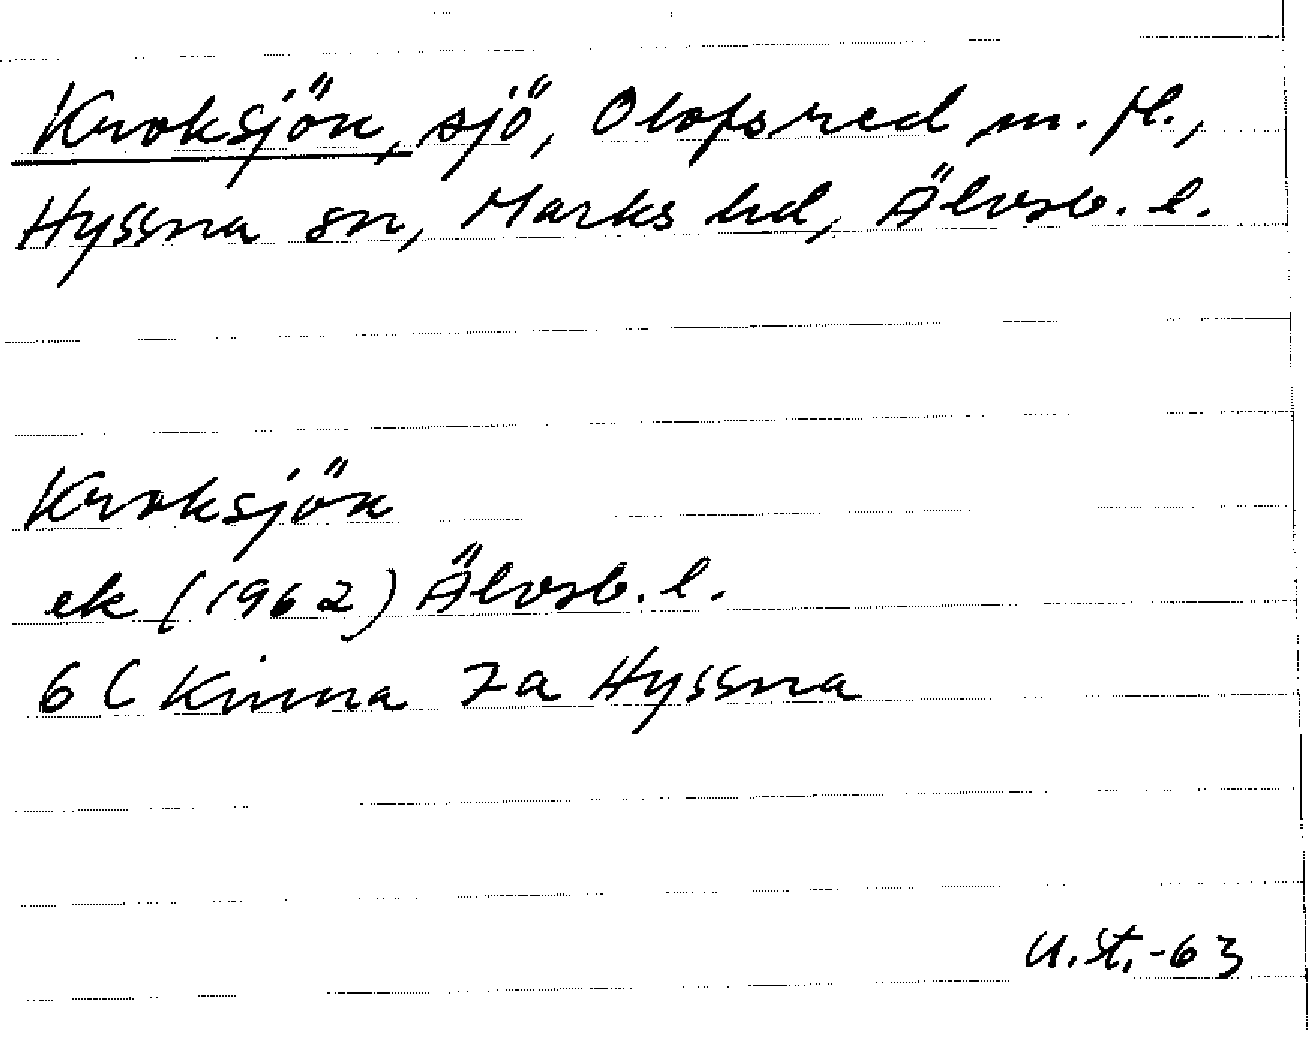 Kroksjön, sjö, Olofsred m. fl.,
Hyssna sn, Marks hd, Älvsb. l.
Kroksjön
ek (1962) Älvsb. l.
6 C Kinna 7a Hyssna
U.St.-63